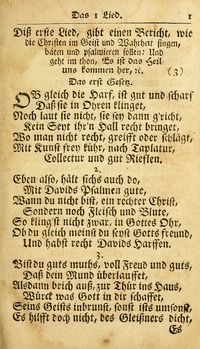 Das 1 Lied. 1
Diß erste Lied, gibt einen Bericht, wie
die Christen im Geist und Wahrheit singen,
bäten und psalmieren sollen: Und
geht im thon, Es ist das Heil
uns kommen her, ꝛc. (3)
Das erst Gesetz.
OB gleich die Harf, ist gut und scharf
Daß sie in Ohren klinget,
Noch laut sie nicht, sie sey dann g'richt,
Kein Seyt ihr'n Hall recht bringet,
Wo man nicht recht, greifft oder schlägt,
Mit Kunst frey führt, nach Taplatur,
Collectur und gut Rieflen.
2.
Eben also, hält sichs auch do,
Mit Davids Psalmen gute,
Wann du nicht bist, ein rechter Christ,
Sondern noch Fleisch und Blute,
So klingst nicht zwar, in Gottes Ohr,
Ob du gleich meinst du seyst Gotts freund,
Und habst recht Davids Harffen.
3.
Bist du guts muths, voll Freud und guts,
Daß dein Mund überlauffet,
Alsdann brich auß, zur Thür ins Haus,
Würck was Gott in dir schaffet,
Seins Geists inbrunst, sonst ists umsonst,
Es hilfft doch nicht, des Gleißners dicht,
Es